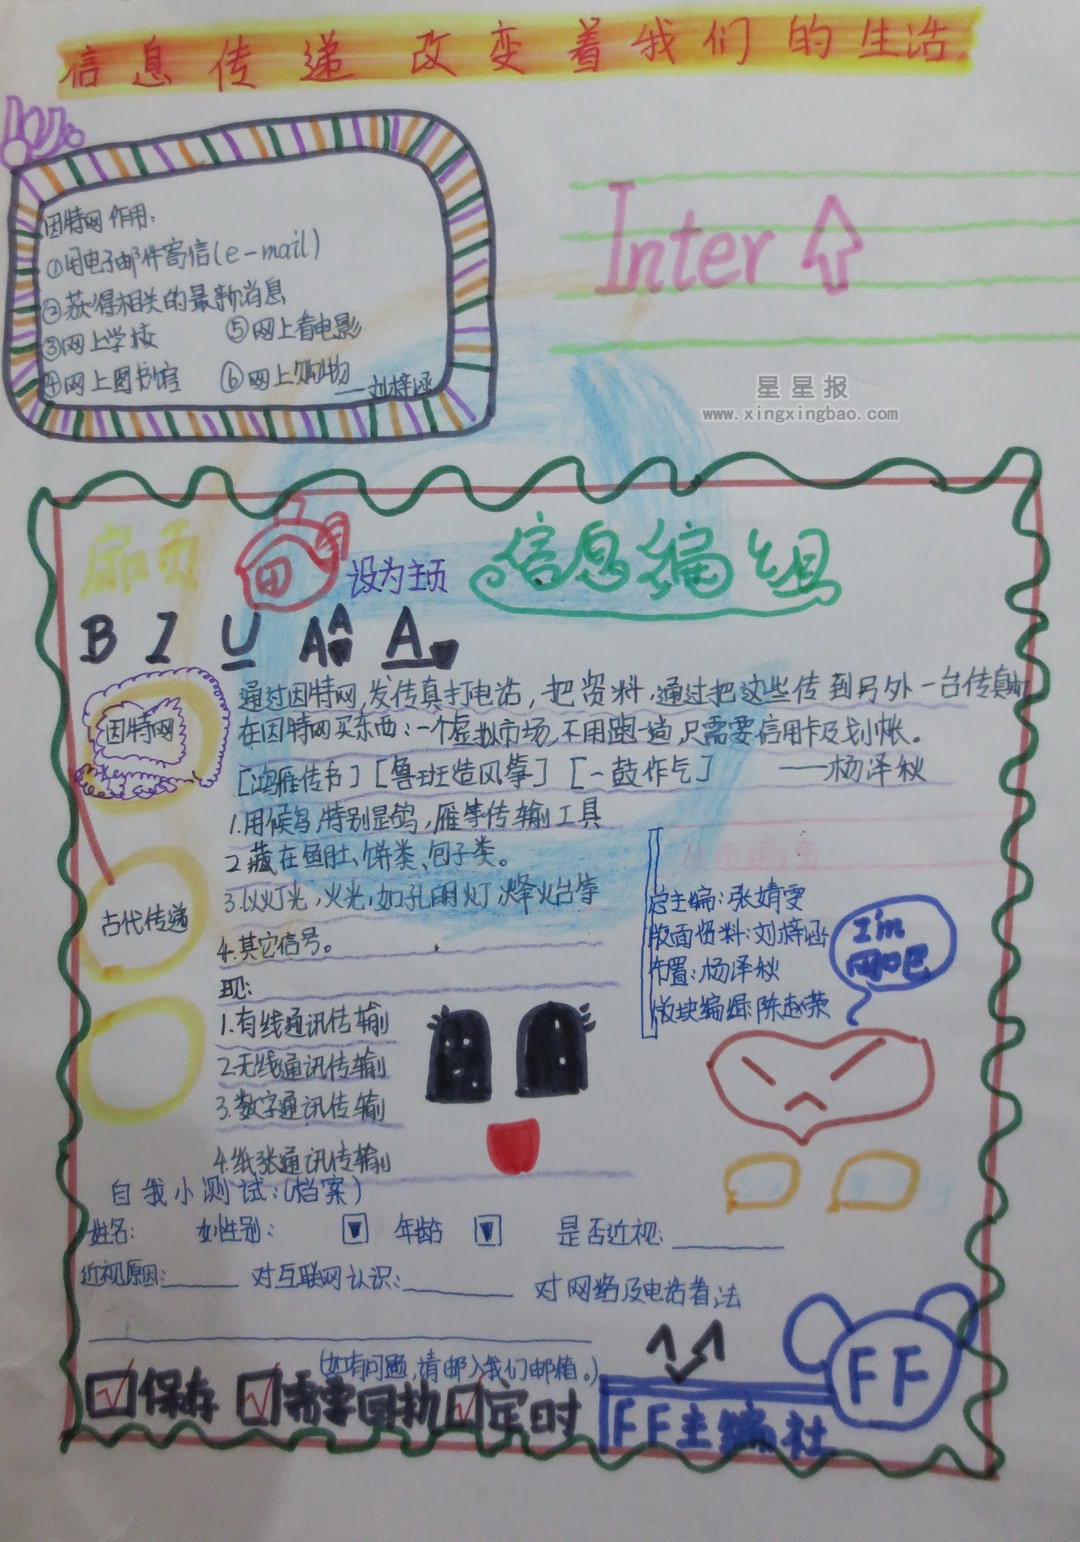 信息传递 改变着我们的生活
因特网作用：
①用电子邮件寄信(e-mail)
②获得相关的最新消息
③网上学校 ⑤网上看电影
④网上图书馆 ⑥网上购物
——刘梓涵
Inter
星星报
www.xingxingbao.com
扉页
设为主页
信息编组
B I U A A A
因特网
通过因特网,发传真打电话,把资料,通过把这些传到另外一台传真
在因特网买东西:一个虚拟市场,不用跑一趟,只需要信用卡及划帐。
[鸿雁传书] [鲁班造风筝] [一鼓作气] ——杨泽秋
1.用候鸟,特别是鸽,雁等传输工具
2.藏在鱼肚、饼类、包子类。
3.以灯光,火光,如孔明灯,烽火台等
4.其它信号。
古代传递
现:
1.有线通讯传输
2.无线通讯传输
3.数字通讯传输
4.纸张通讯传输
总主编:张婧雯
版面资料:刘梓涵
布置:杨泽秋
版块编辑:陈越荣
I'm
网吧
自我小测试:(档案)
姓名: 性别: 年龄 是否近视:
近视原因: 对互联网认识: 对网络及电话看法
(如有问题,请邮入我们邮箱。)
保存 需要回执 定时
FF主编社
FF